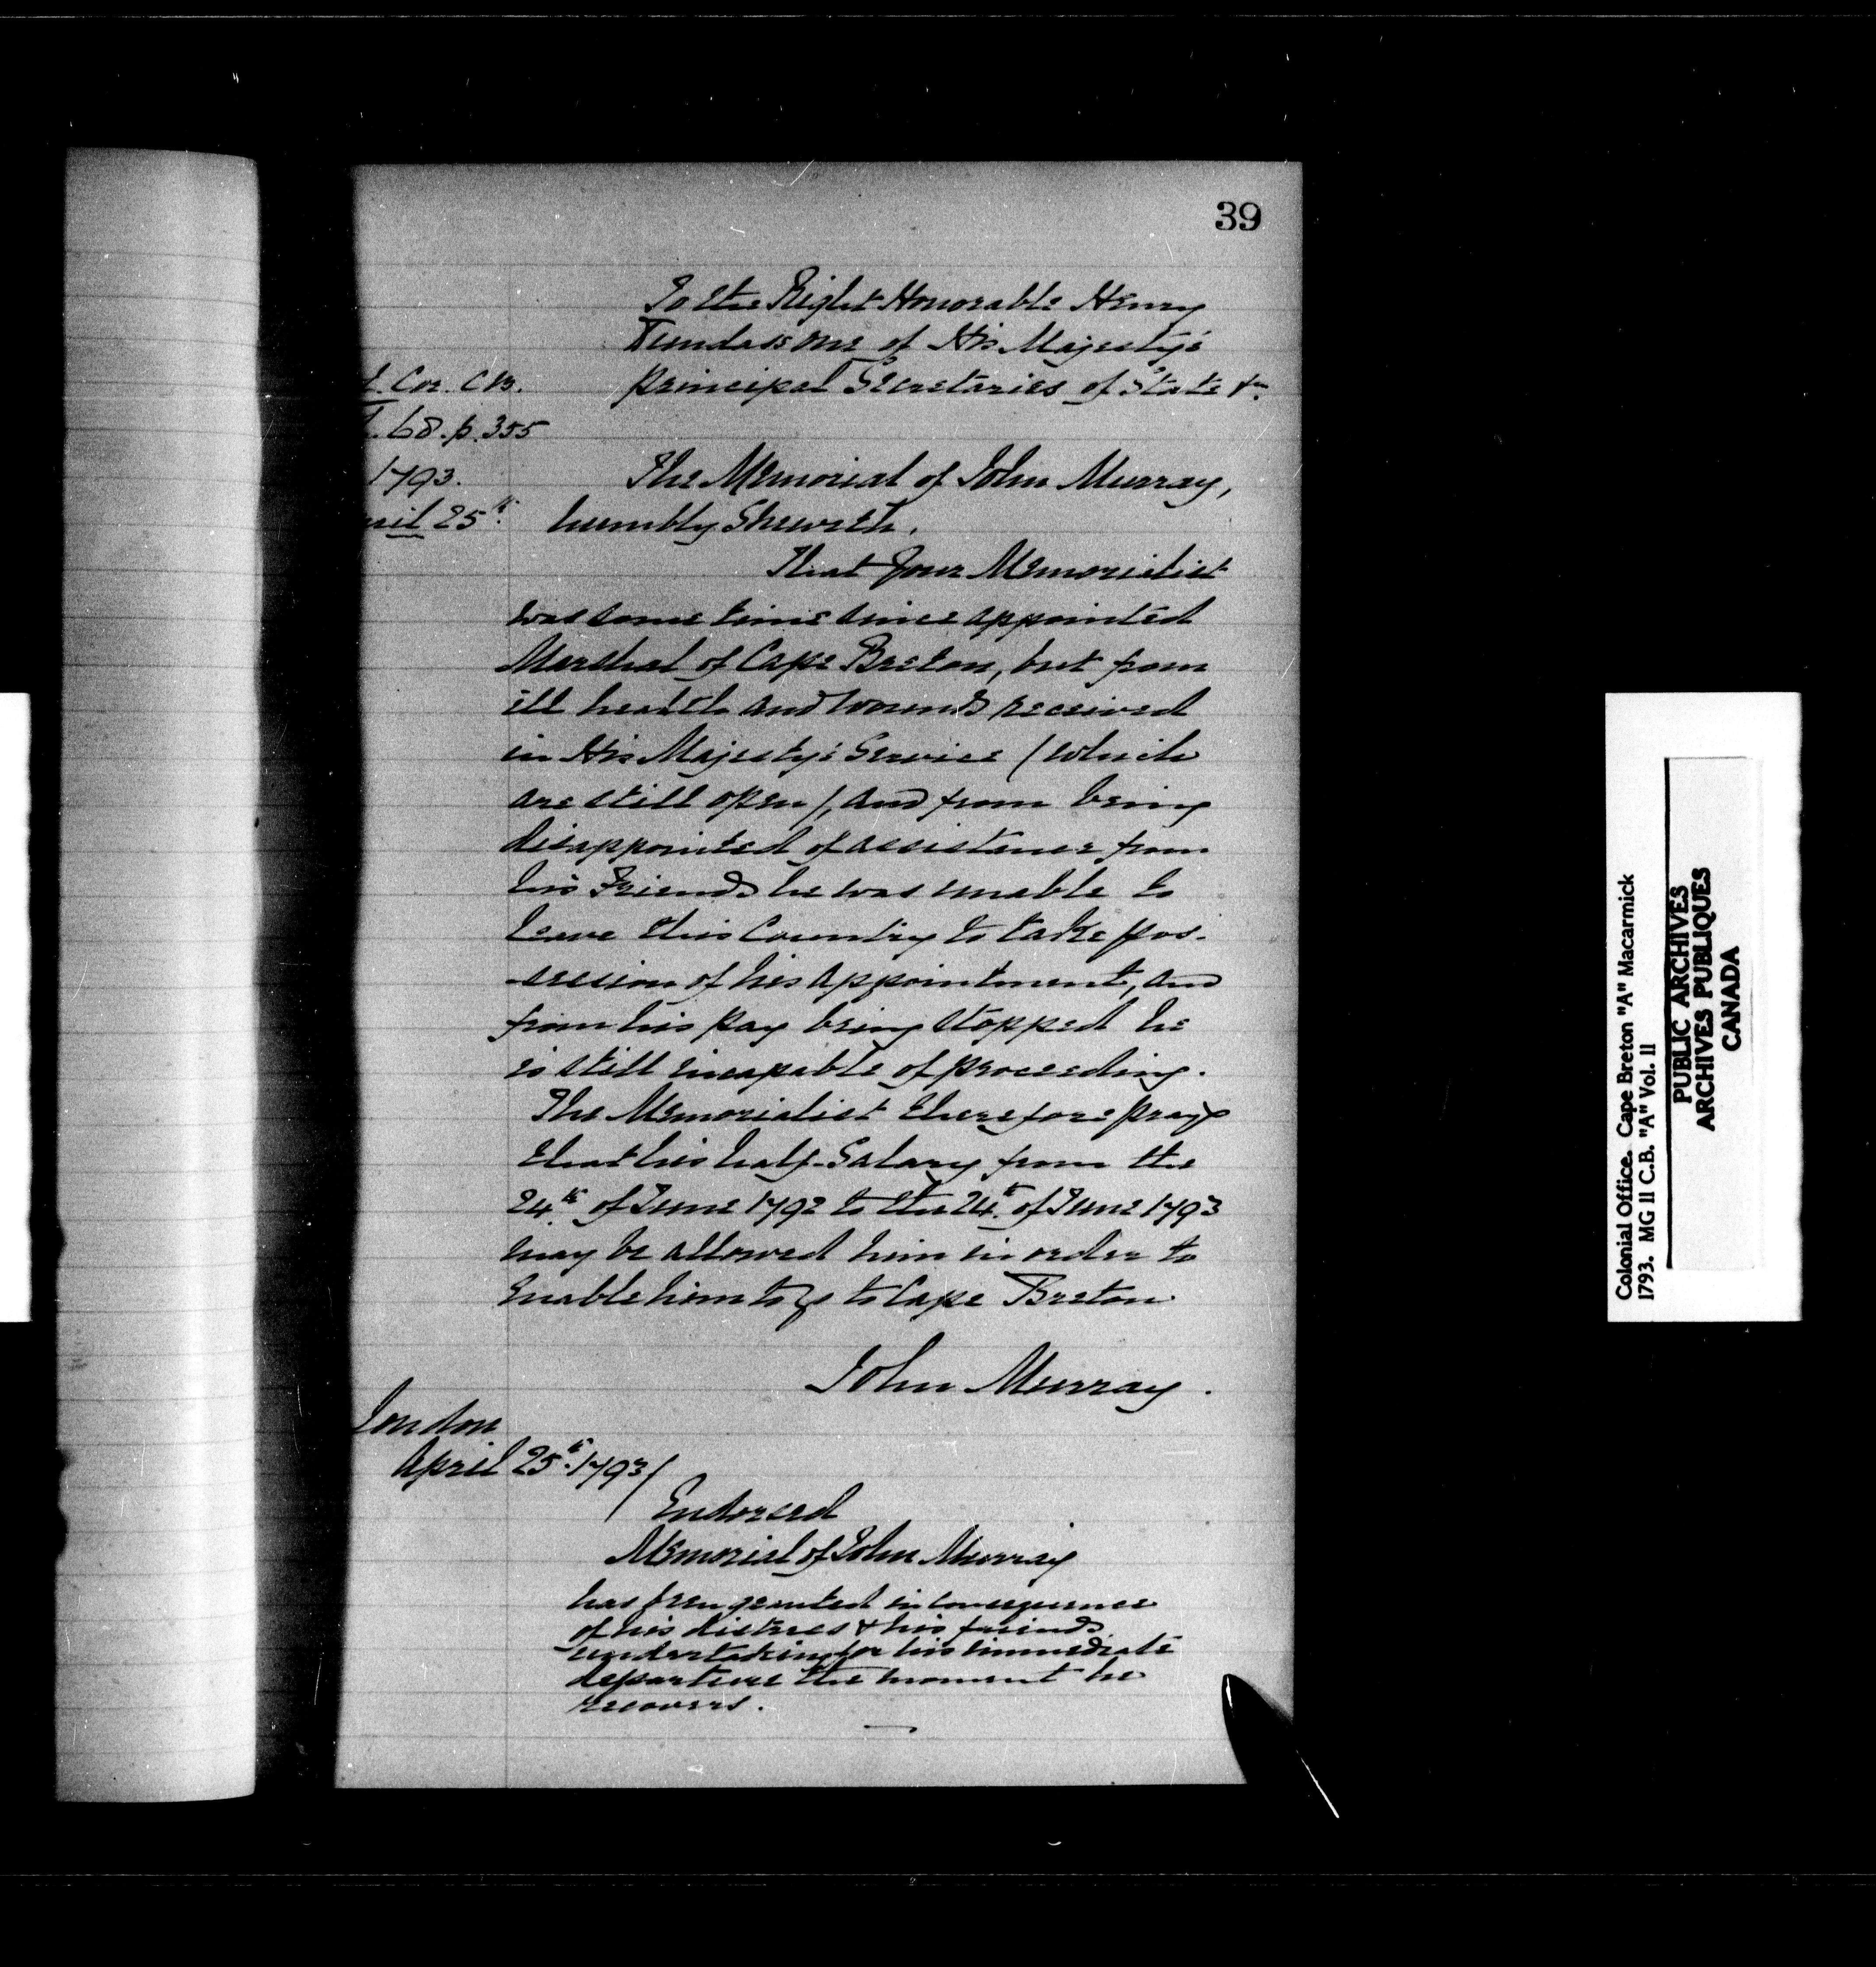 39
To the Right Honorable Henry
Dundas one of His Majesty's
Principal Secretaries of State &c.
Cor. C.B.
68. p. 355
1793.
25th.
The Memorial of John Murray,
humbly Sheweth.
That Your Memorialist
was some time since appointed
Marshal of Cape Breton, but from
ill health and wounds received
in His Majesty's Service (which
are still open), and from being
disappointed of assistance from
his Friends he was unable to
leave this Country to take pos-
-session of his appointment, and
from his pay being stopped he
is still incapable of proceeding.
The Memorialist therefore prays
that his half-Salary from the
24th of June 1792 to the 24th of June 1793
may be allowed him in order to
enable him to go to Cape Breton.
John Murray.
London
April 25th. 1793/
Endorsed
Memorial of John Murray
has been granted in consequence
of his distress & his friends
undertaking for his immediate
departure the moment he
recovers.
Colonial Office. Cape Breton "A" Macarmick
1793. MG 11 C.B. "A" Vol. 11
PUBLIC ARCHIVES
ARCHIVES PUBLIQUES
CANADA